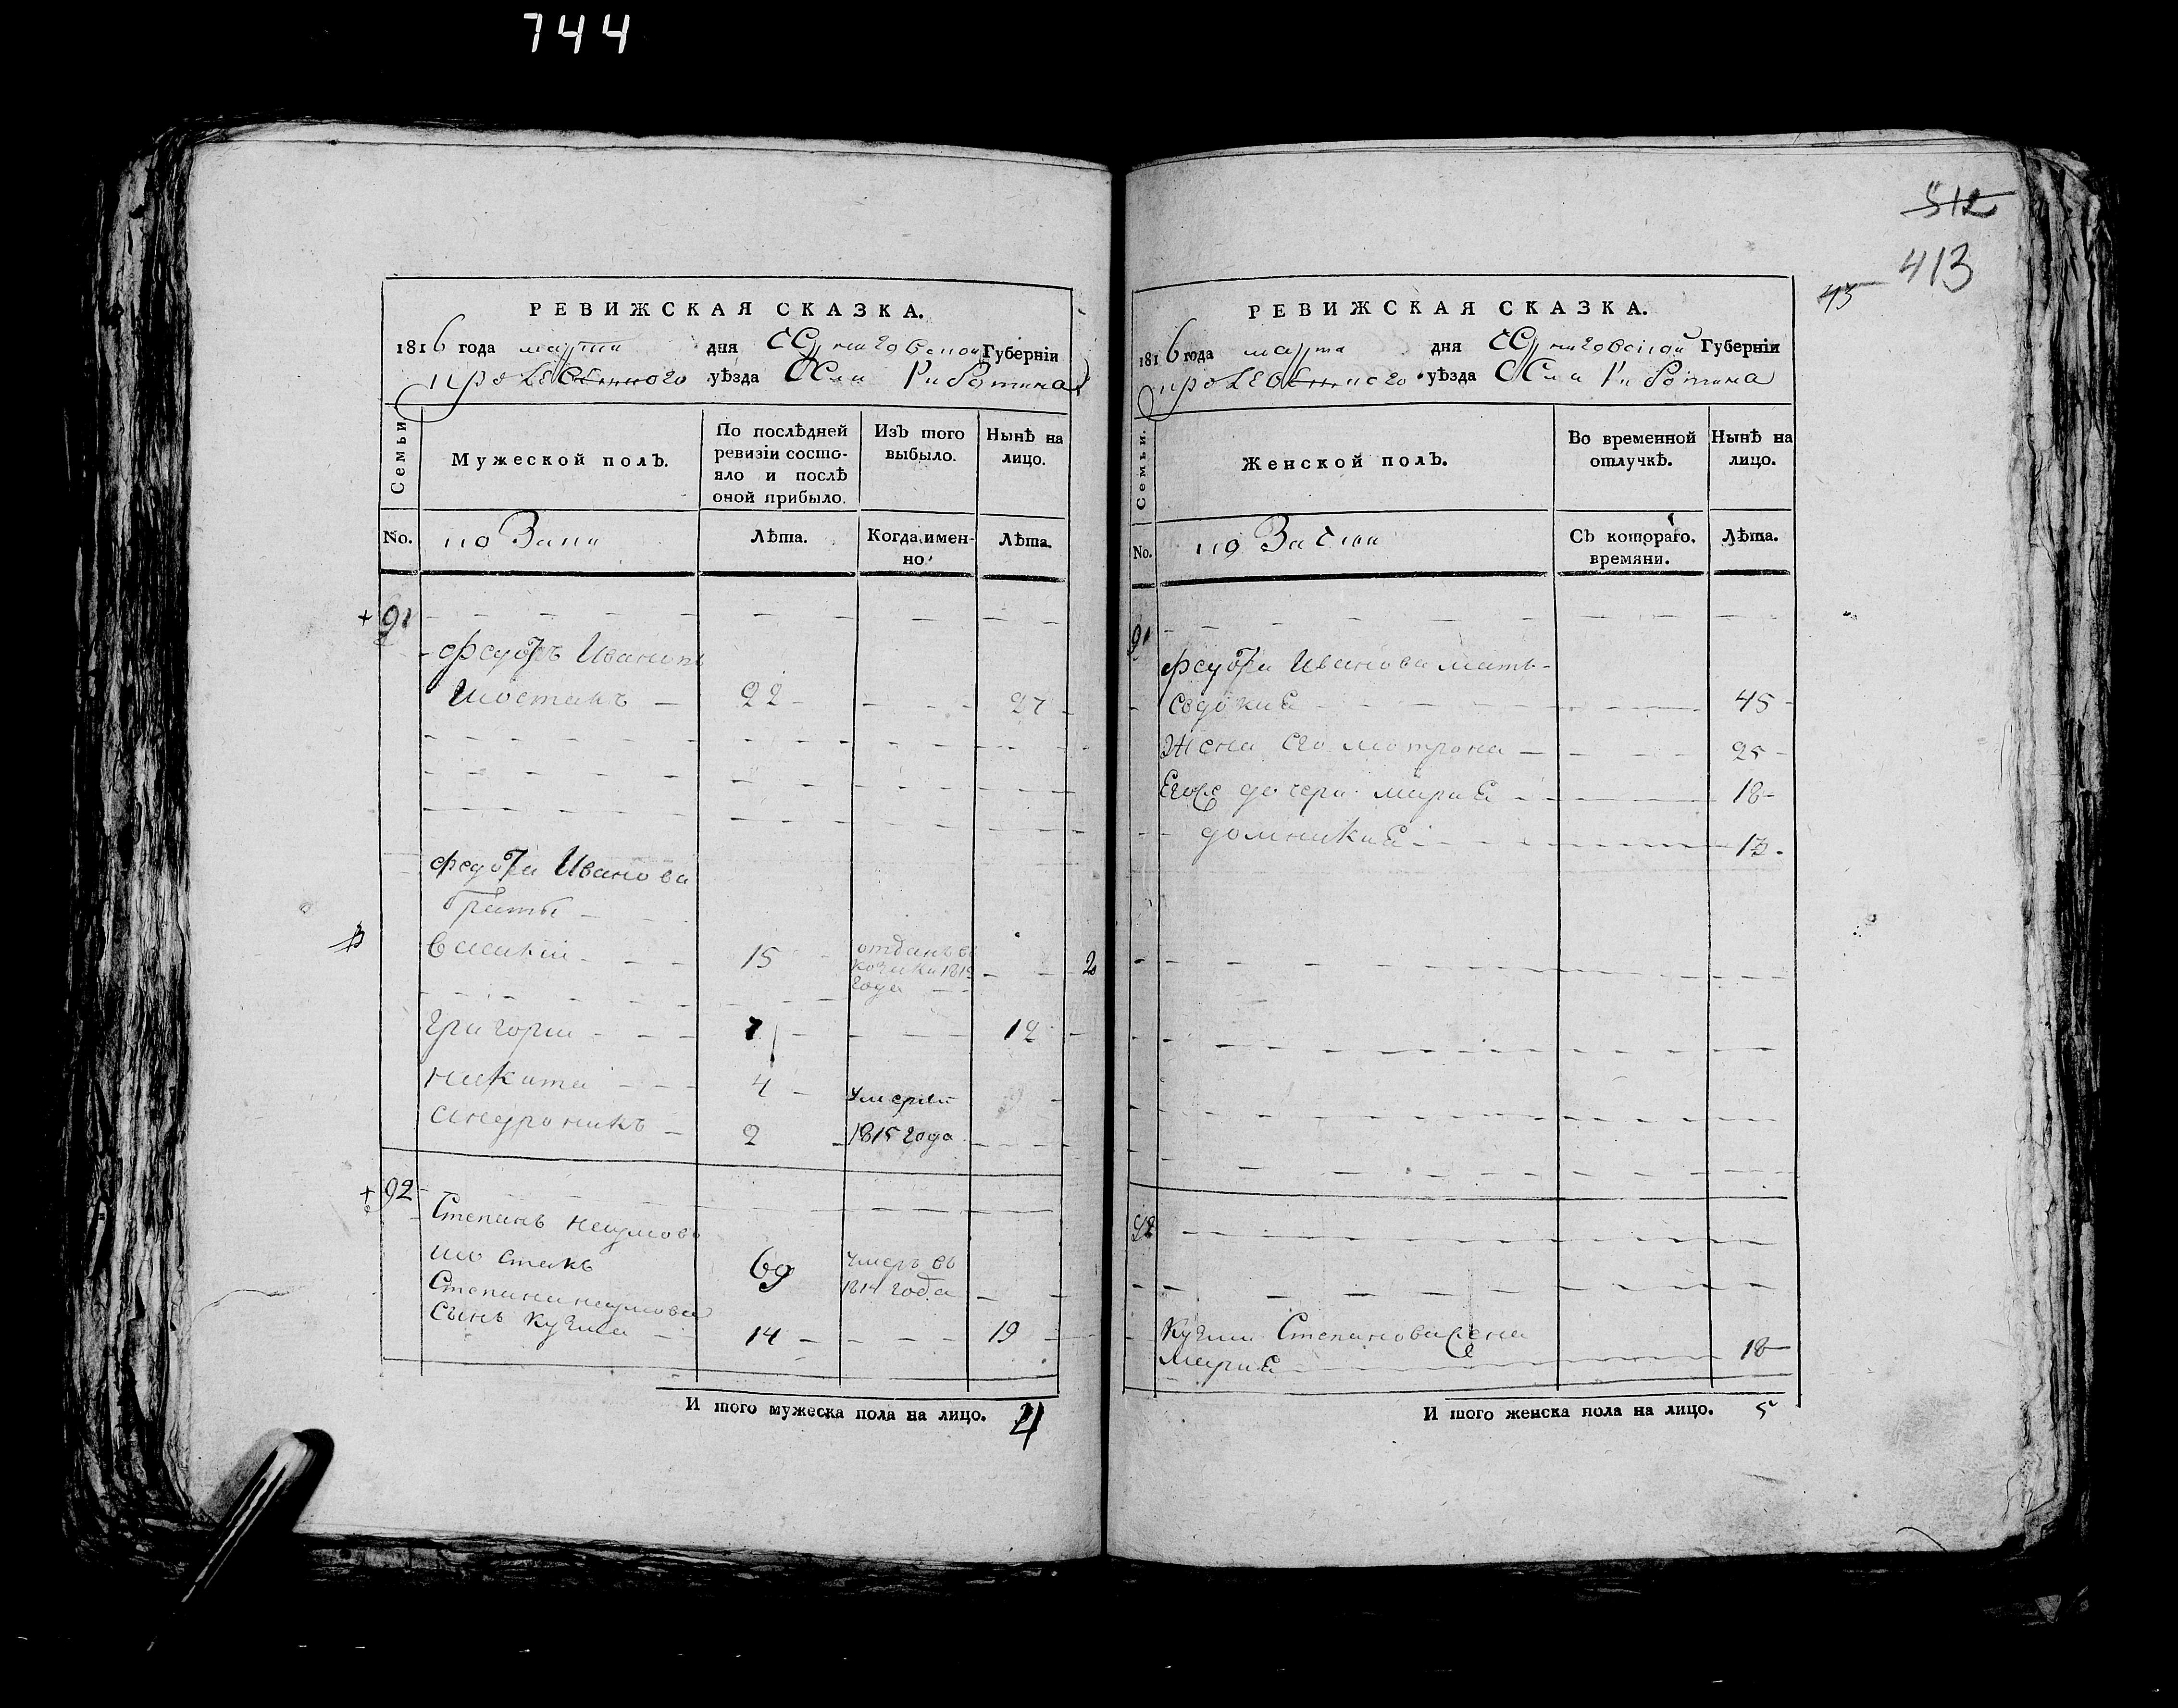 744
РЕВИЖСКАЯ СКАЗКА.
1816 года марта дня Черниговской Губернiи
уѣзда Села Рыботина
Семьи
Мужеской полъ.
По послѣдней ревизiи состояло и послѣ оной прибыло.
Изъ того выбыло.
Нынѣ на лицо.
No.
Лѣта.
Когда имен-
но.
Лѣта.
+ 91
Федоръ Ивановъ
Шостакъ 22 27
Федора Иванова
браты
Василий 15 отданъ въ
года
Григорий 7 12
Никита 4
Андроникъ 2 1815 года
+ 92
Степанъ Наумовъ
Шостакъ 69 умеръ въ
1814 года
Степана Наумова
сынъ Кузма 14 19
И того мужеска пола на лицо. 4
512
413
43
РЕВИЖСКАЯ СКАЗКА.
1816 года марта дня Черниговской Губернiи
уѣзда Села Рыботина
Семьи.
Женской полъ.
Во временной отлучкѣ.
Нынѣ на лицо.
No.
Съ котораго.
времяни.
Лѣта.
91
Федора Иванова мать
Евдокия 45
Жена его Мотрона 25
Его же дочери Мария 18
Домникия
92
Кузмы Степанова жена
Мария 18
И того женска пола на лицо. 5